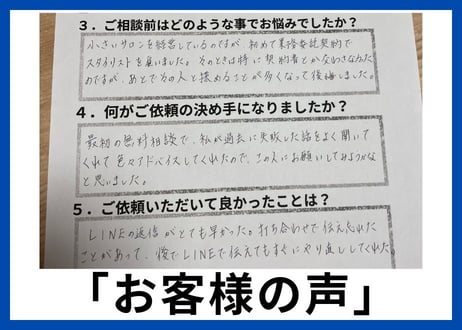 ３．ご相談前はどのような事でお悩みでしたか？
小さいサロンを経営しているのですが、初めて業務委託契約で
スタイリストを雇いました。そのときは特に契約書とか交わさなかった
のですが、あとでその人と揉めることが多くなって後悔しました。
４．何がご依頼の決め手になりましたか？
最初の無料相談で、私が過去に失敗した話をよく聞いて
くれて色々アドバイスしてくれたので、この人にお願いしてみようかな
と思いました。
５．ご依頼いただいて良かったことは？
LINEの返信がとても早かった。打ち合わせで伝え忘れた
ことがあって、後でLINEで伝えてもすぐにやり直ししてくれた
「お客様の声」